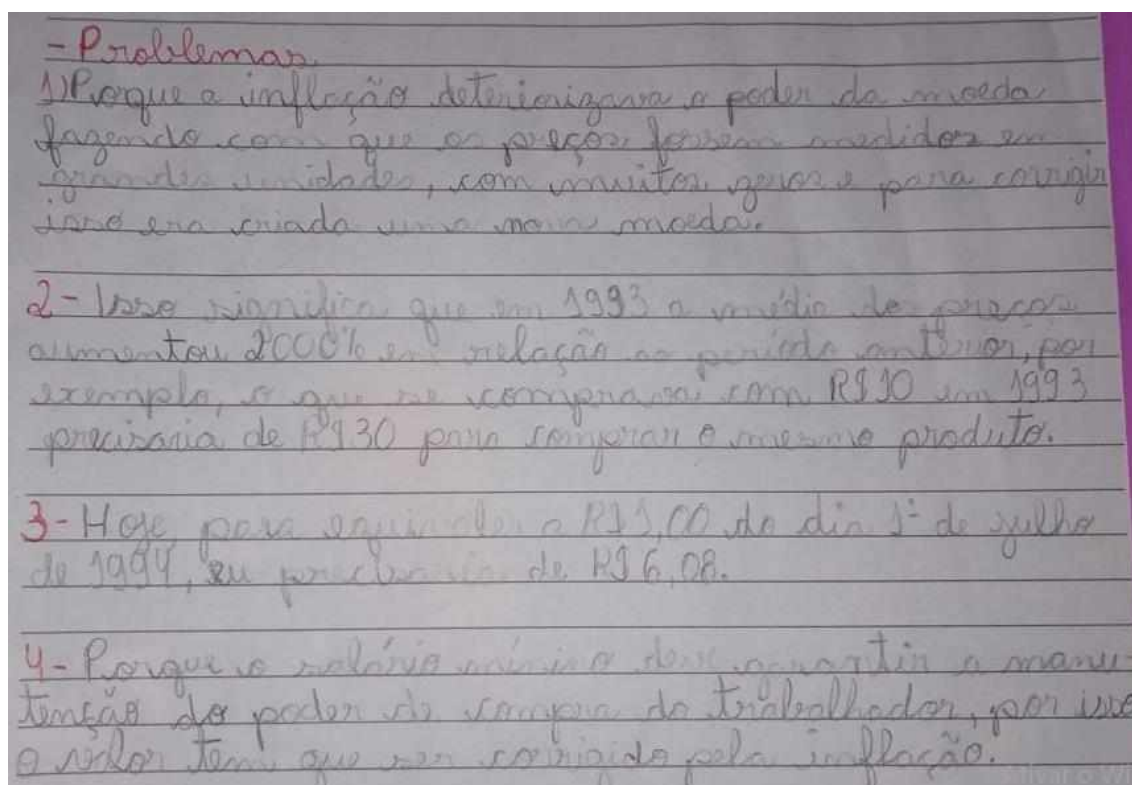 - Problemas
1) Porque a inflação deteriorizava o poder da moeda
fazendo com que os preços fossem medidos em
grandes unidades, com muitos zeros e para corrigir
isso era criado uma nova moeda.
2- Isso significa que em 1993 a média de preços
aumentou 2000% em relação ao período anterior, por
exemplo, o que se comprava com R$10 em 1993
precisaria de R$30 para comprar o mesmo produto.
3- Hoje para equivaler a R$1,00 do dia 1º de julho
de 1994, eu precisaria de R$6,08.
4- Porque o salário mínimo deve garantir a manu-
tenção do poder de compra do trabalhador, por isso
o valor tem que ser corrigido pela inflação.